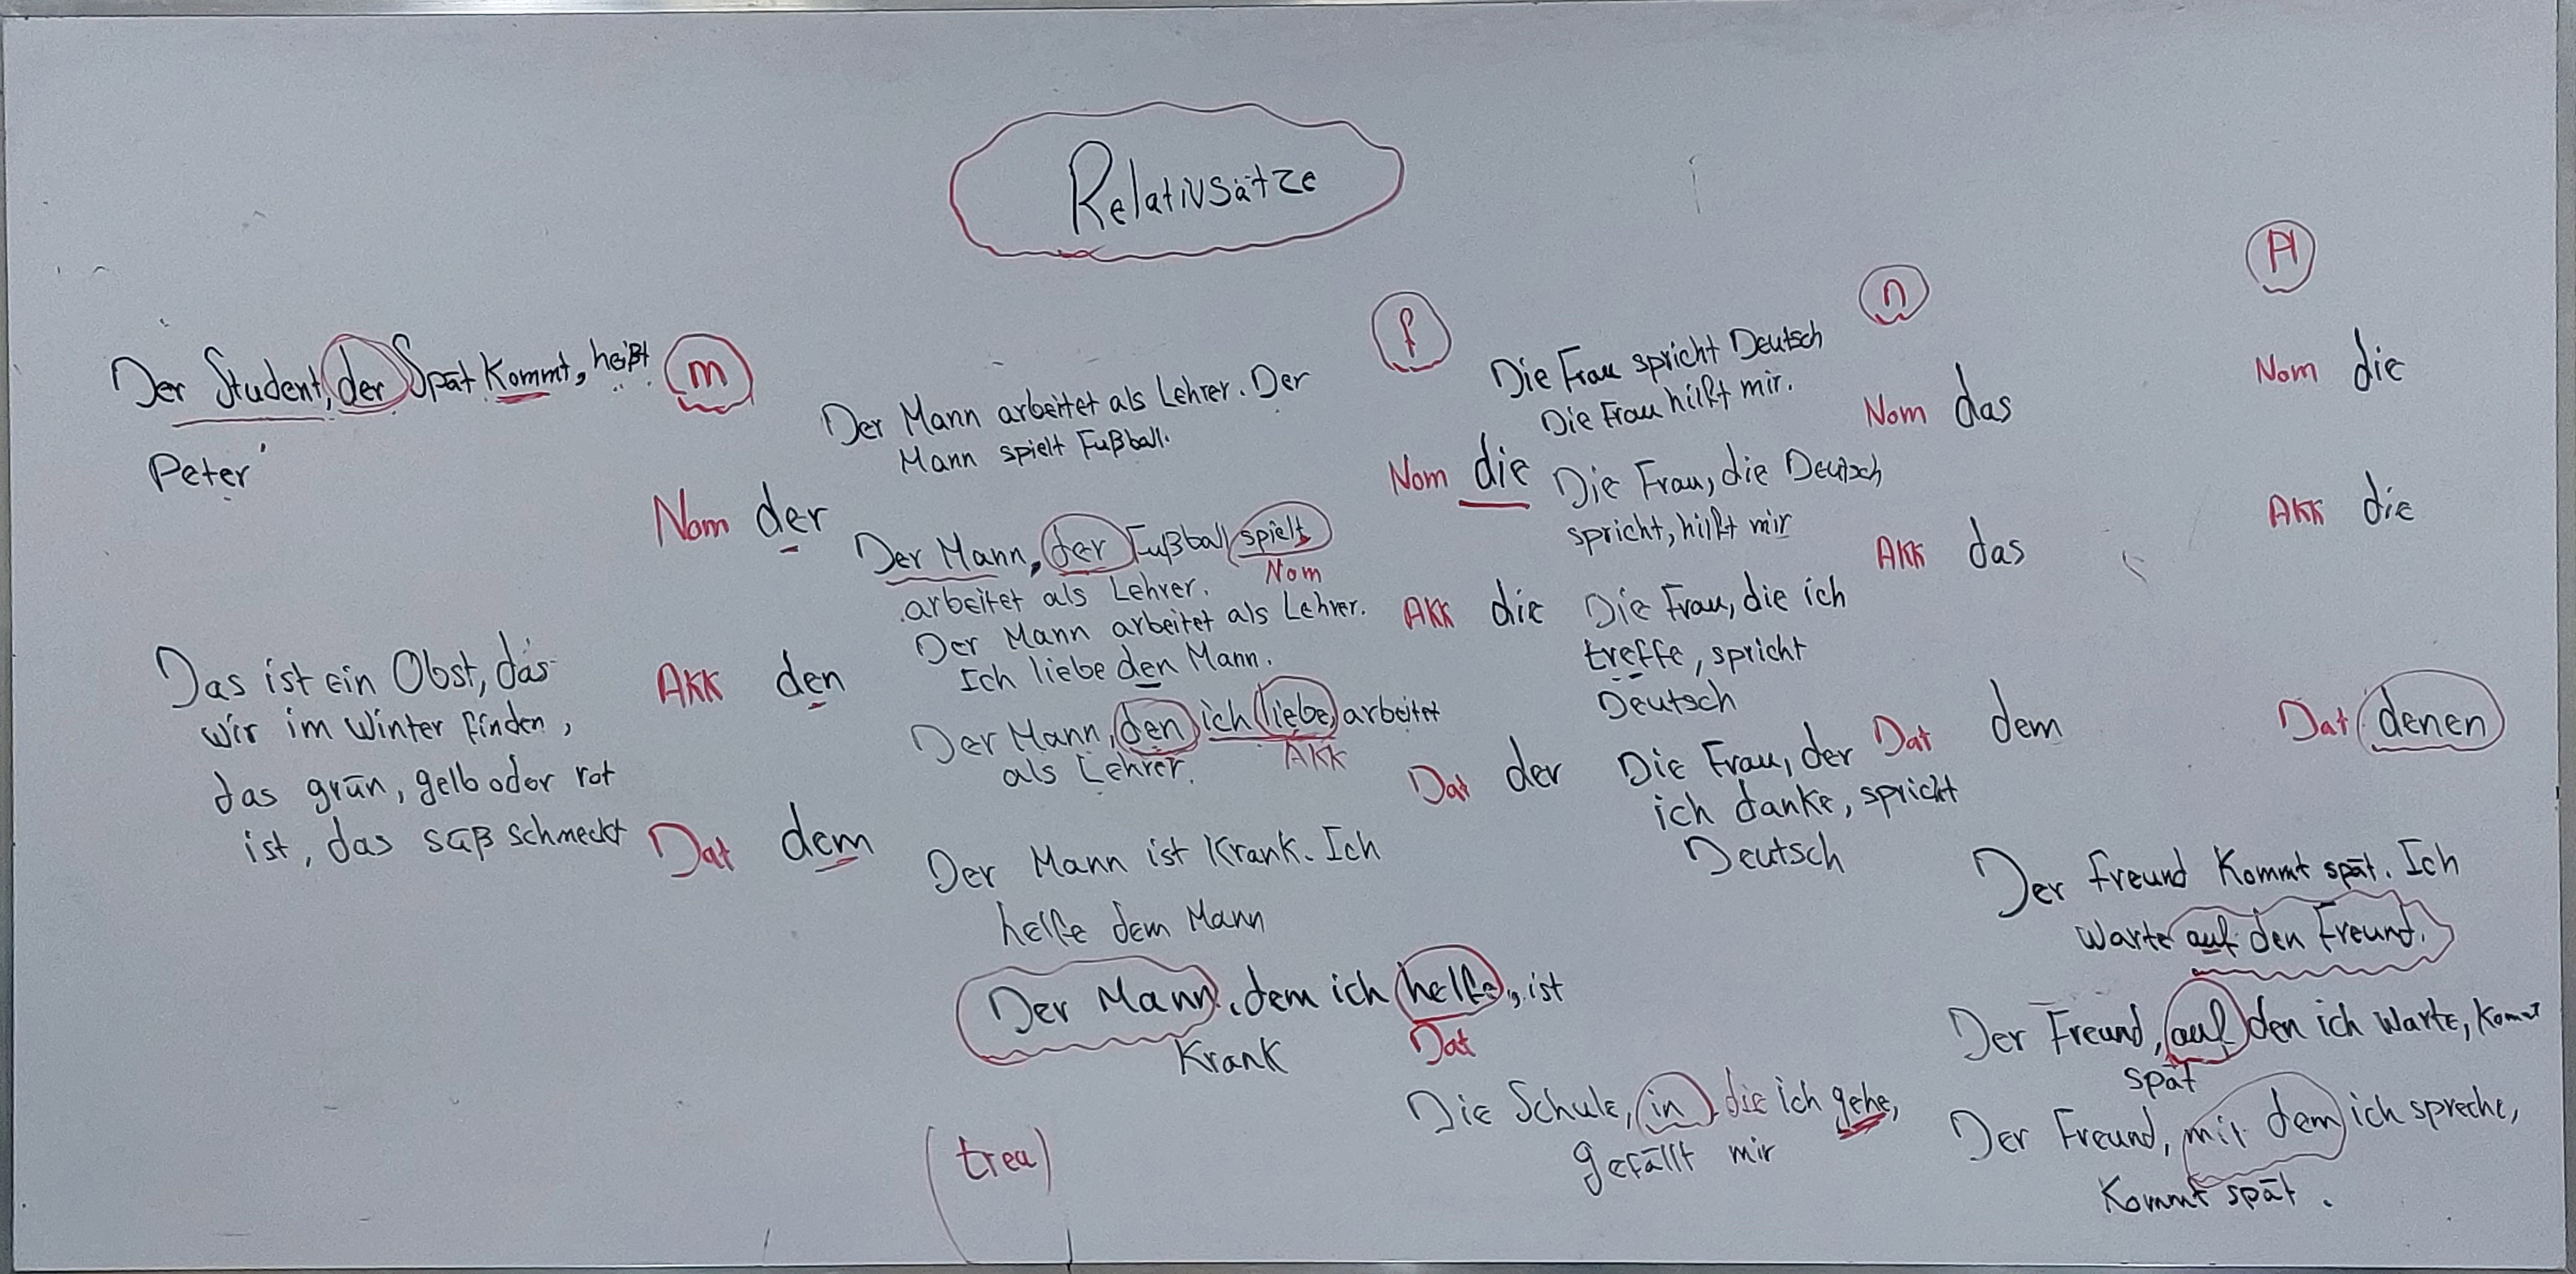 Relativsätze
Der Student, der Spät Kommt, heißt
Peter
Das ist ein Obst, das
wir im Winter finden,
das grün, gelb oder rot
ist, das süß schmeckt
m
Nom der
AKK den
Dat dem
Der Mann arbeitet als Lehrer. Der
Mann spielt Fußball.
Der Mann, der Fußball spielt
Nom
arbeitet als Lehrer.
Der Mann arbeitet als Lehrer.
Ich liebe den Mann.
Der Mann, den ich liebe, arbeitet
als Lehrer.
AKK
Der Mann ist Krank. Ich
helfe dem Mann
Der Mann, dem ich helfe, ist
Krank
Dat
(treu)
f
Nom die
AKK die
Dat der
Die Frau spricht Deutsch
Die Frau hilft mir.
Die Frau, die Deutsch
spricht, hilft mir
Die Frau, die ich
treffe, spricht
Deutsch
Die Frau, der
ich danke, spricht
Deutsch
Die Schule, in die ich gehe,
gefällt mir
n
Nom das
AKK das
Dat dem
Pl
Nom die
AKK die
Dat denen
Der Freund Kommt spät. Ich
warte auf den Freund.
Der Freund, auf den ich warte, Kommt
spät
Der Freund, mit dem ich spreche,
Kommt spät.